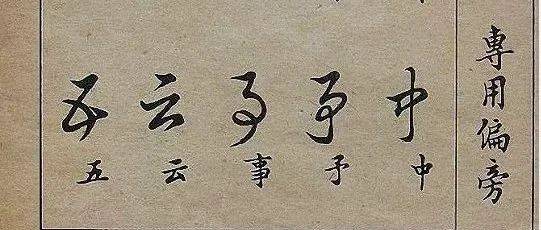 專用偏旁
中中
予予
事事
云云
五五